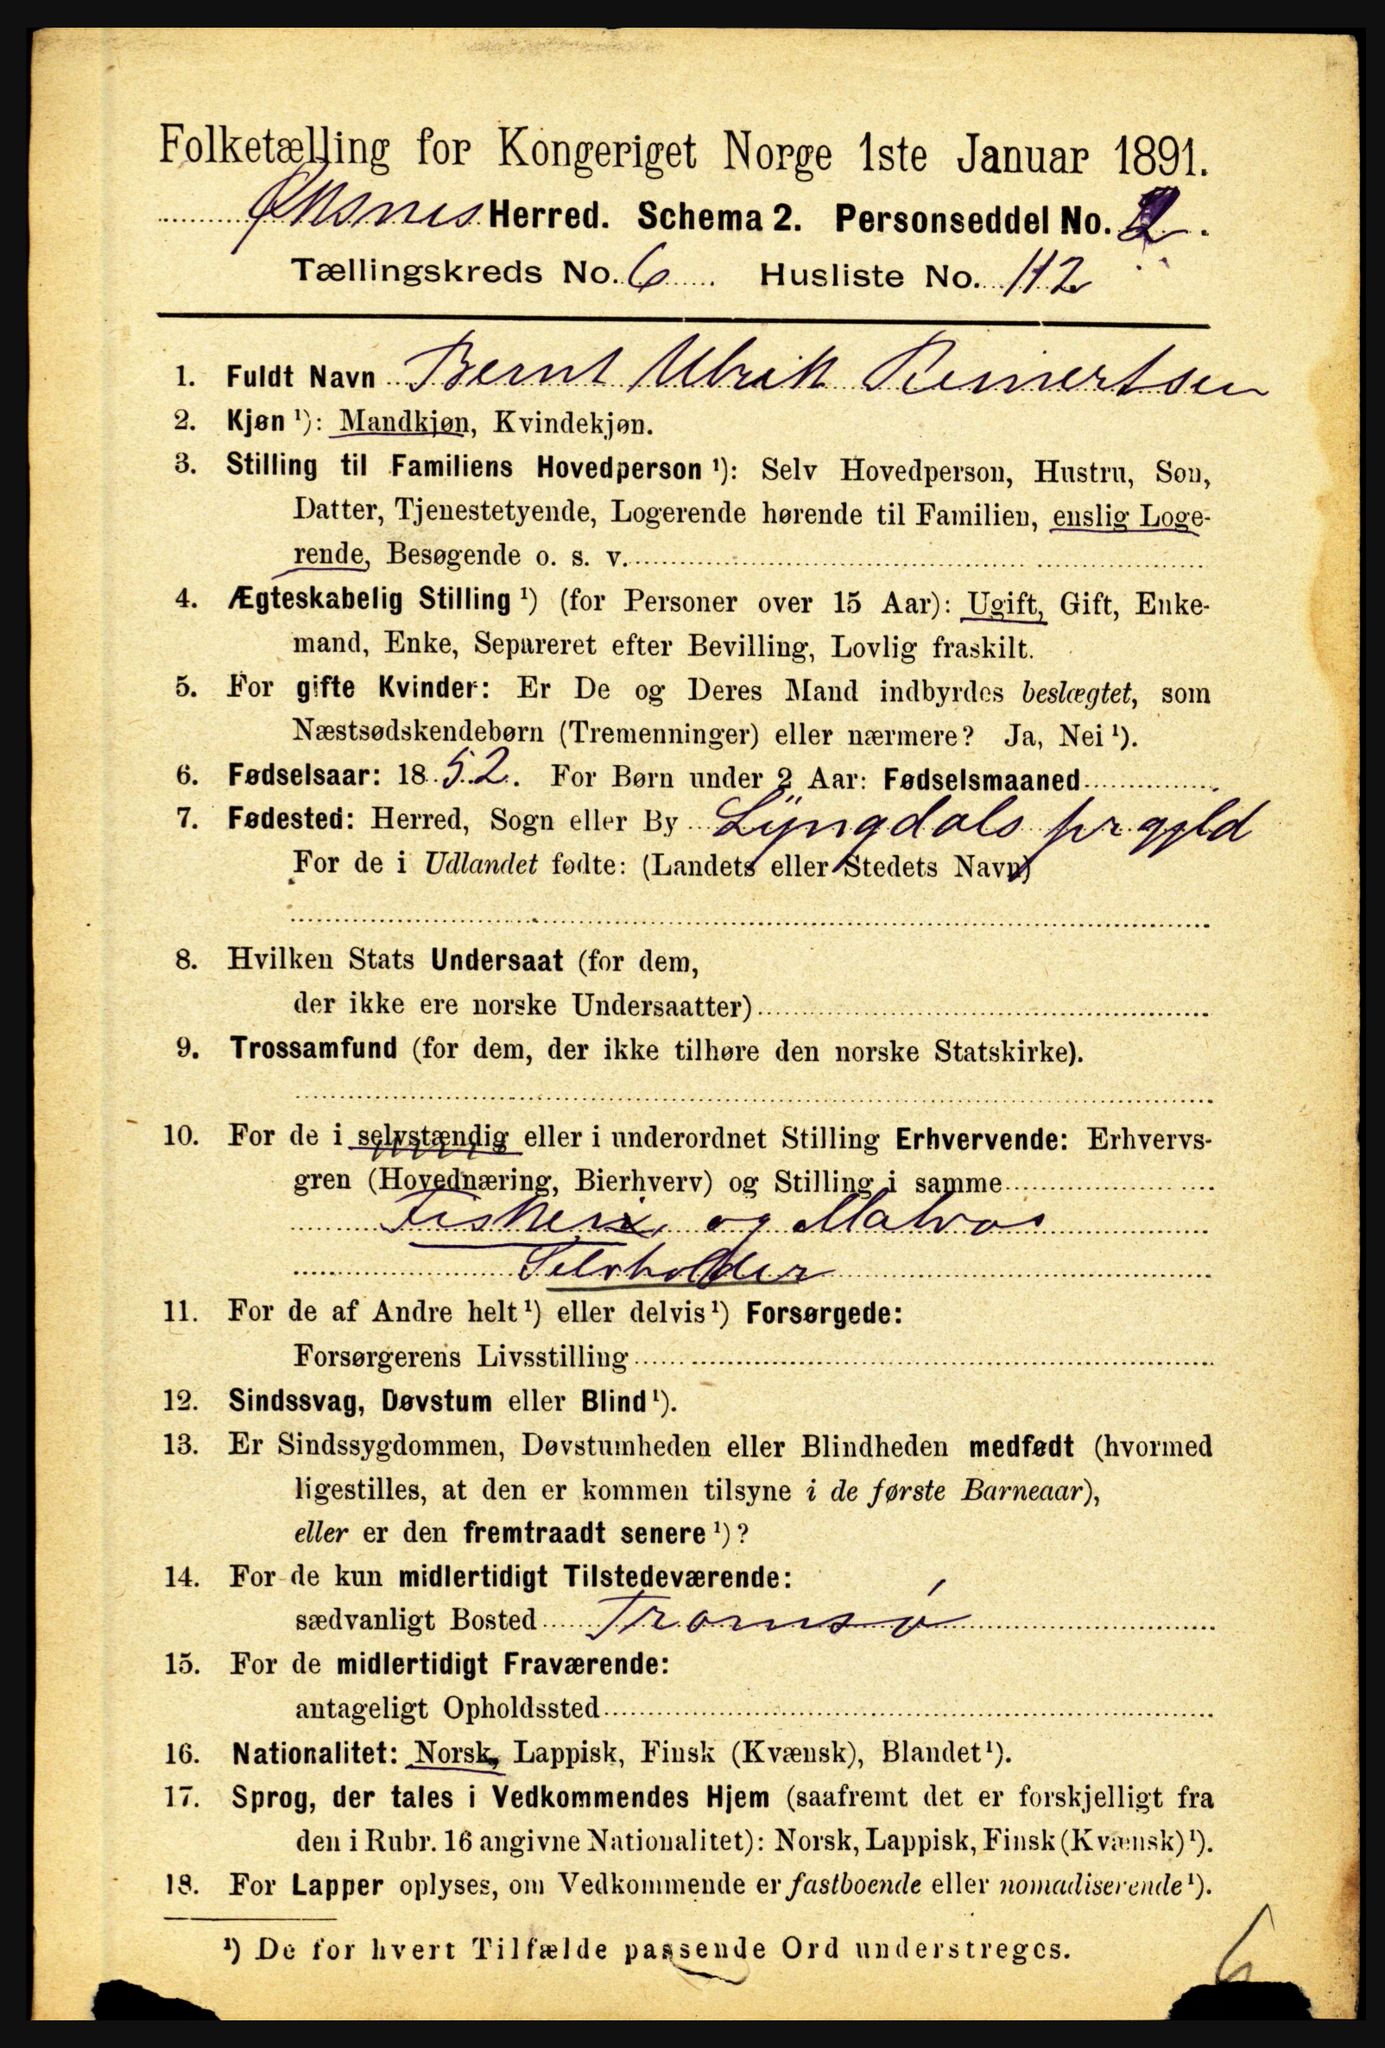 Folketælling for Kongeriget Norge 1ste Januar 1891.
Øksnes Herred. Schema 2. Personseddel No. 2.
Tællingskreds No. 6 Husliste No. 112
1. Fuldt Navn Bernt Ulrik Reinertsen
2. Kjøn ¹): Mandkjøn, Kvindekjøn.
3. Stilling til Familiens Hovedperson ¹): Selv Hovedperson, Hustru, Søn,
Datter, Tjenestetyende, Logerende hørende til Familien, enslig Loge-
rende, Besøgende o. s. v.
4. Ægteskabelig Stilling ¹) (for Personer over 15 Aar): Ugift, Gift, Enke-
mand, Enke, Separeret efter Bevilling, Lovlig fraskilt.
5. For gifte Kvinder: Er De og Deres Mand indbyrdes beslægtet, som
Næstsødskendebørn (Tremenninger) eller nærmere? Ja, Nei ¹).
6. Fødselsaar: 1852. For Børn under 2 Aar: Fødselsmaaned
7. Fødested: Herred, Sogn eller By Lyngdals prgjld
For de i Udlandet fødte: (Landets eller Stedets Navn)
8. Hvilken Stats Undersaat (for dem,
der ikke ere norske Undersaatter)
9. Trossamfund (for dem, der ikke tilhøre den norske Statskirke).
10. For de i selvstændig eller i underordnet Stilling Erhvervende: Erhvervs-
gren (Hovednæring, Bierhverv) og Stilling i samme
Fisker og Matros
11. For de af Andre helt ¹) eller delvis ¹) Forsørgede:
Forsørgerens Livsstilling
12. Sindssvag, Døvstum eller Blind ¹).
13. Er Sindssygdommen, Døvstumheden eller Blindheden medfødt (hvormed
ligestilles, at den er kommen tilsyne i de første Barneaar),
eller er den fremtraadt senere ¹)?
14. For de kun midlertidigt Tilstedeværende:
sædvanligt Bosted Tromsø
15. For de midlertidigt Fraværende:
antageligt Opholdssted
16. Nationalitet: Norsk, Lappisk, Finsk (Kvænsk), Blandet ¹).
17. Sprog, der tales i Vedkommendes Hjem (saafremt det er forskjelligt fra
den i Rubr. 16 angivne Nationalitet): Norsk, Lappisk, Finsk (Kvænsk) ¹).
18. For Lapper oplyses, om Vedkommende er fastboende eller nomadiserende ¹).
¹) De for hvert Tilfælde passende Ord understreges.
6